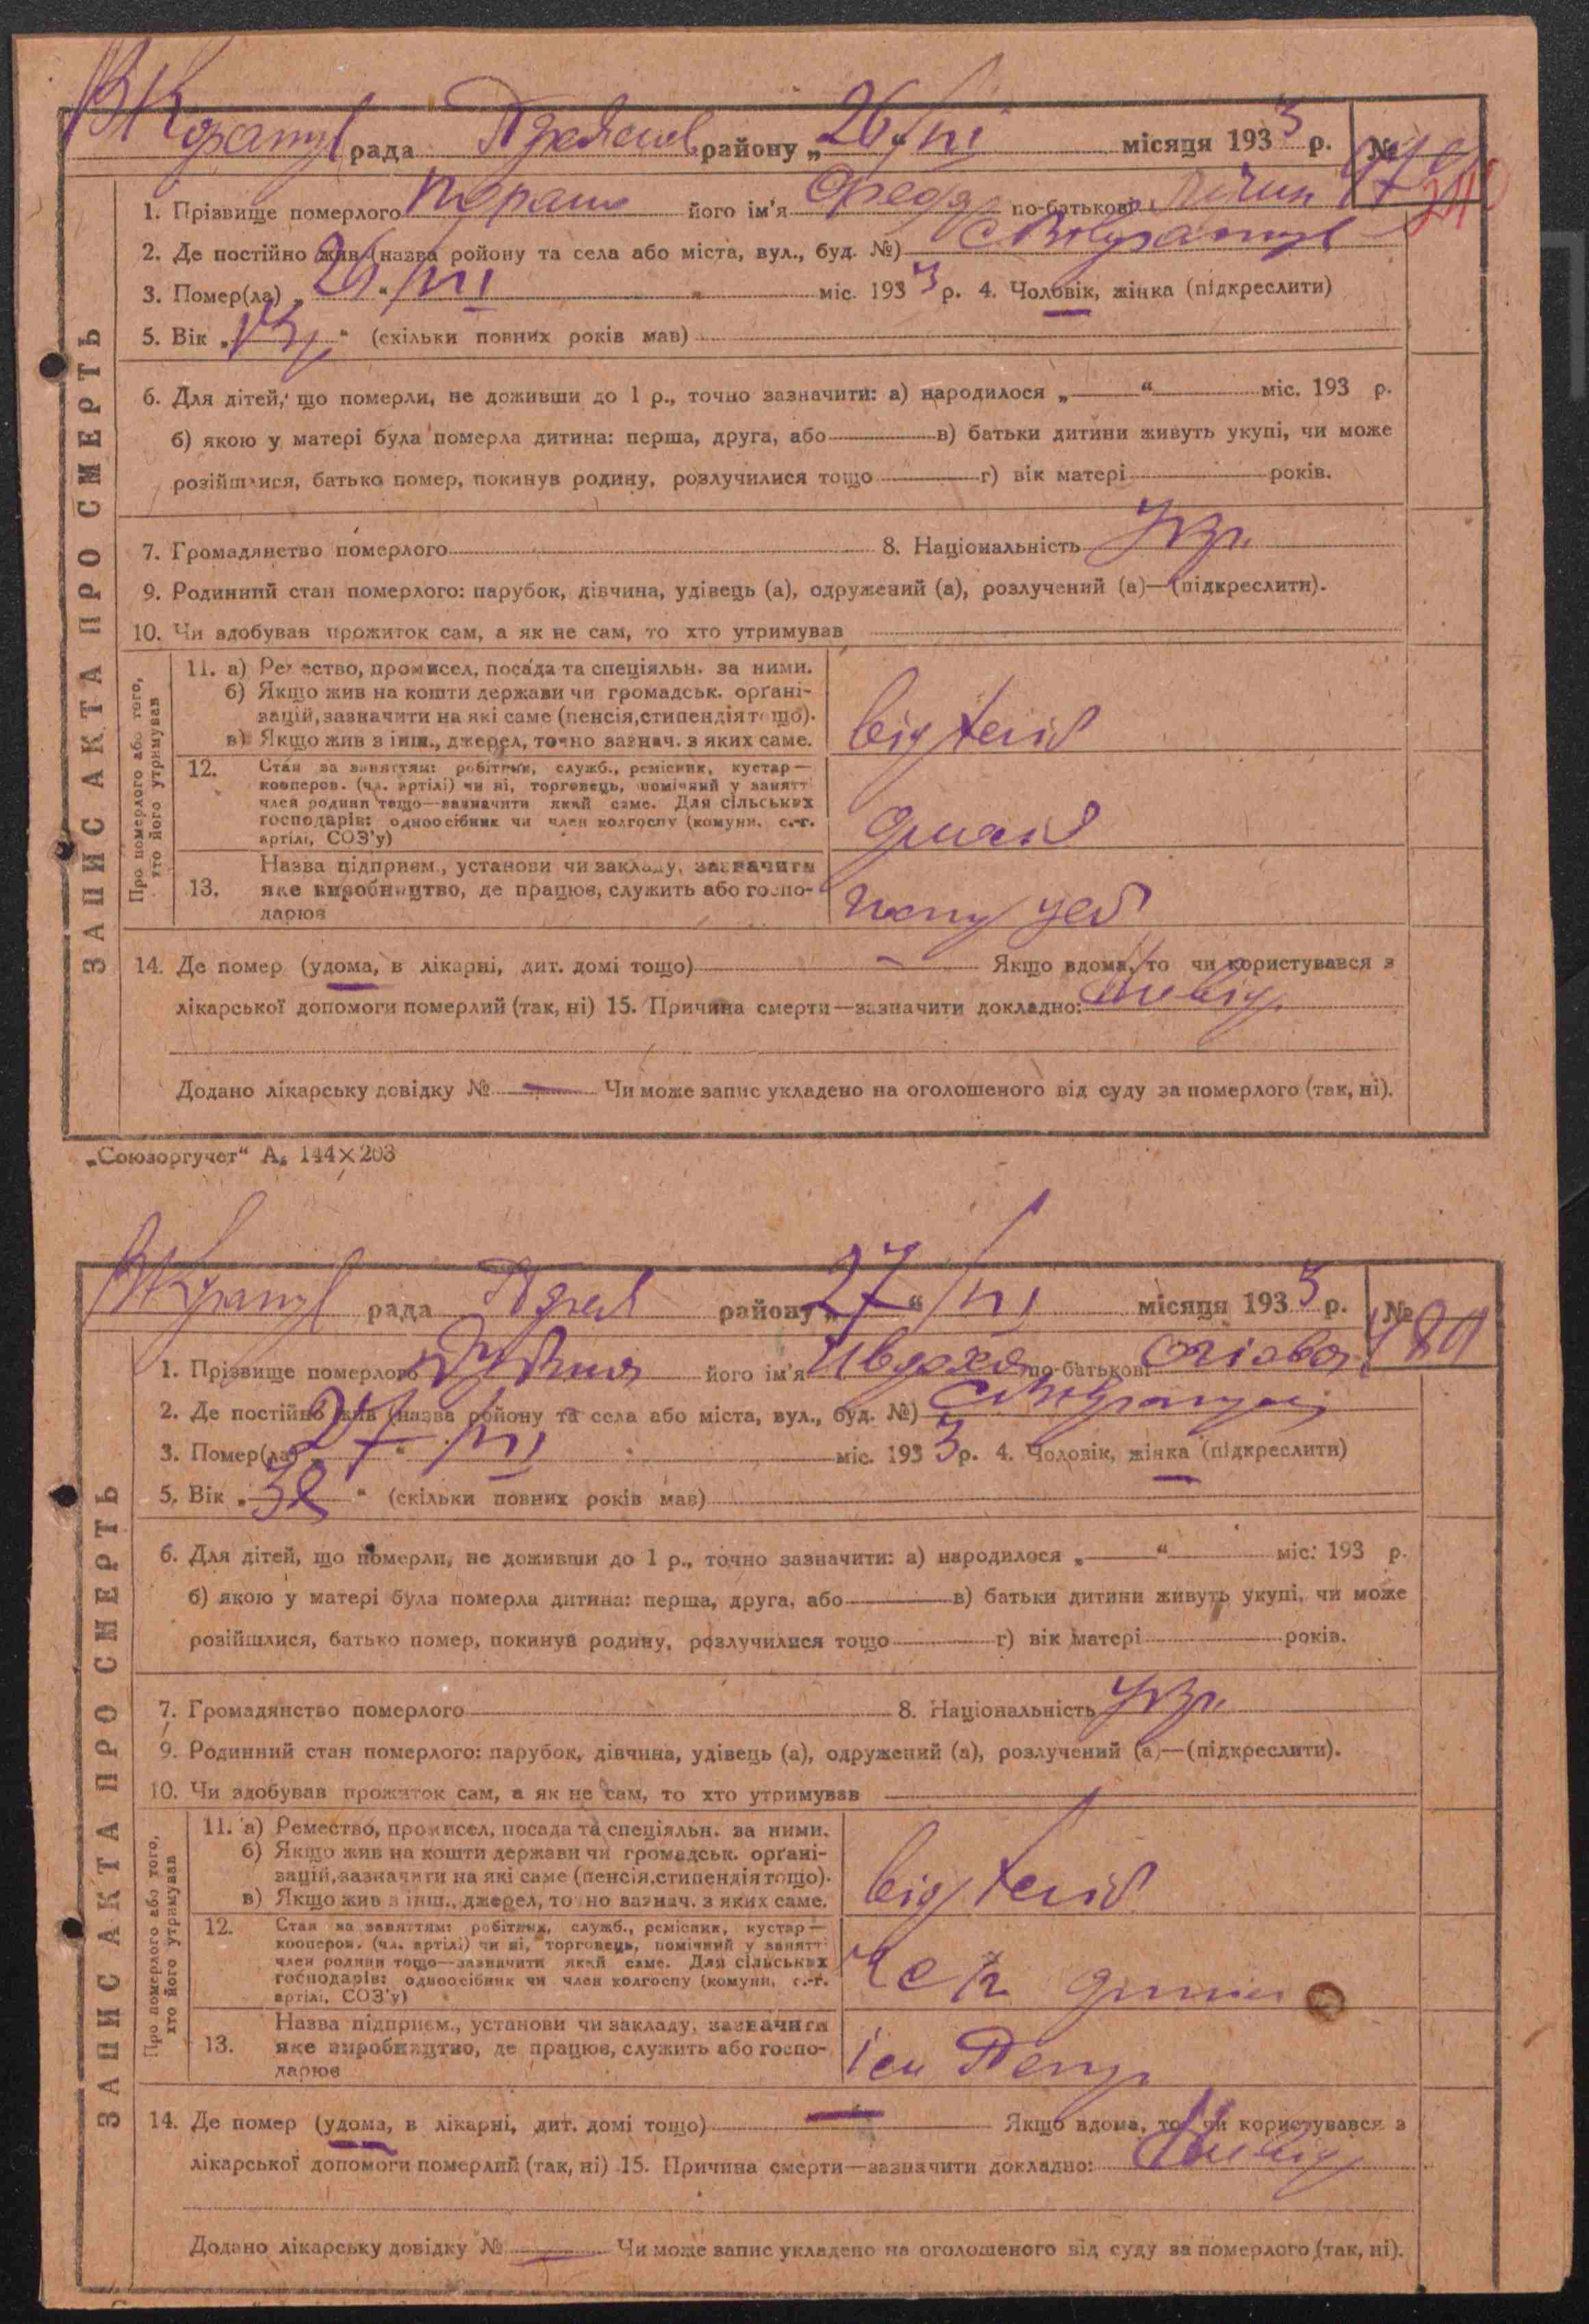 рада району „26 “ VII місяця 1933 р. №
1. Прізвище померлого його ім'я Федя по-батькові
2. Де постійно жив (назва ройону та села або міста, вул., буд. №) с
3. Помер(ла) „26“ VII міс. 1933 р. 4. Чоловік, жінка (підкреслити)
5. Вік „ “ (скільки повних років мав)
6. Для дітей, що померли, не доживши до 1 р., точно зазначити: а) народилося „ “ міс. 193 р.
б) якою у матері була померла дитина: перша, друга, або в) батьки дитини живуть укупі, чи може
розійшлися, батько помер, покинув родину, розлучилися тощо г) вік матері років.
7. Громадянство померлого 8. Національність Укр.
9. Родинний стан померлого: парубок, дівчина, удівець (а), одружений (а), розлучений (а)—(підкреслити).
10. Чи здобував прожиток сам, а як не сам, то хто утримував
ЗАПИС АКТА ПРО СМЕРТЬ
Про померлого або того, хто його утримував
11. а) Ремество, промисел, посада та спеціяльн. за ними.
б) Якщо жив на кошти держави чи громадськ. орґані-
зацій, зазначити на які саме (пенсія, стипендія тощо).
в) Якщо жив з інш., джерел, точно зазнач. з яких саме.
12. Стан за заняттям: робітник, служб., ремісник, кустар—
кооперов. (чл. артілі) чи ні, торговець, помічний у занятті
член родини тощо—зазначити який саме. Для сільських
господарів: одноосібник чи член колгоспу (комуни, с.-г.
артілі, СОЗ'у)
13. Назва підприєм., установи чи закладу, зазначити
яке виробництво, де працює, служить або госпо-
дарює
14. Де помер (удома, в лікарні, дит. домі тощо) Якщо вдома, то чи користувався з
лікарської допомоги померлий (так, ні) 15. Причина смерти—зазначити докладно:
Додано лікарську довідку № — Чи може запис укладено на оголошеного від суду за померлого (так, ні).
„Союзоргучет“ А₆ 144×203
рада району „27“ VII місяця 1933 р. №
1. Прізвище померлого його ім'я по-батькові
2. Де постійно жив (назва ройону та села або міста, вул., буд. №) с
3. Помер(ла) „27“ VII міс. 1933 р. 4. Чоловік, жінка (підкреслити)
5. Вік „ “ (скільки повних років мав)
6. Для дітей, що померли, не доживши до 1 р., точно зазначити: а) народилося „ “ міс. 193 р.
б) якою у матері була померла дитина: перша, друга, або в) батьки дитини живуть укупі, чи може
розійшлися, батько помер, покинув родину, розлучилися тощо г) вік матері років.
7. Громадянство померлого 8. Національність Укр.
9. Родинний стан померлого: парубок, дівчина, удівець (а), одружений (а), розлучений (а)—(підкреслити).
10. Чи здобував прожиток сам, а як не сам, то хто утримував
ЗАПИС АКТА ПРО СМЕРТЬ
Про померлого або того, хто його утримував
11. а) Ремество, промисел, посада та спеціяльн. за ними.
б) Якщо жив на кошти держави чи громадськ. орґані-
зацій, зазначити на які саме (пенсія, стипендія тощо).
в) Якщо жив з інш., джерел, точно зазнач. з яких саме.
12. Стан за заняттям: робітник, служб., ремісник, кустар—
кооперов. (чл. артілі) чи ні, торговець, помічний у занятті
член родини тощо—зазначити який саме. Для сільських
господарів: одноосібник чи член колгоспу (комуни, с.-г.
артілі, СОЗ'у)
13. Назва підприєм., установи чи закладу, зазначити
яке виробництво, де працює, служить або госпо-
дарює
14. Де помер (удома, в лікарні, дит. домі тощо) — Якщо вдома, то чи користувався з
лікарської допомоги померлий (так, ні) 15. Причина смерти—зазначити докладно:
Додано лікарську довідку № — Чи може запис укладено на оголошеного від суду за померлого (так, ні).